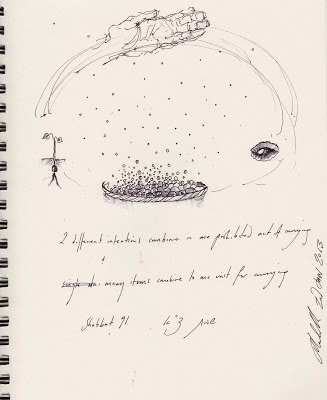 2 different intentions combine in one prohibited act of carrying
&
many items combine to one unit for carrying
Shabbat 91 שבת צ"א
Jan 2013